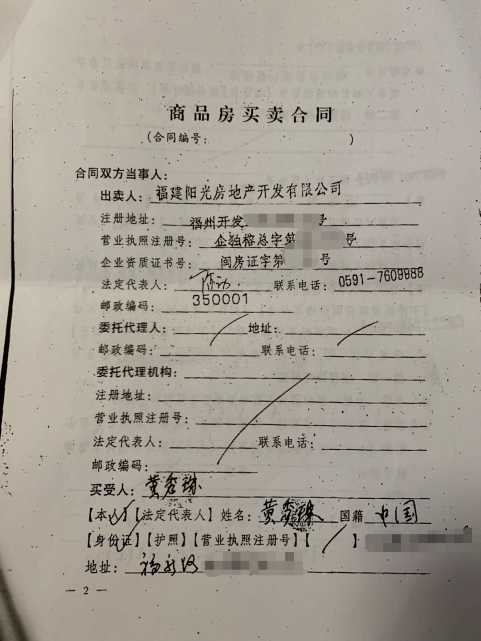 商品房买卖合同
(合同编号: )
合同双方当事人:
出卖人: 福建阳光房地产开发有限公司
注册地址: 福州开发 号
营业执照注册号: 企独榕总字第 号
企业资质证书号: 闽房证字第 号
法定代表人: 联系电话: 0591-7609888
邮政编码: 350001
委托代理人: 地址:
邮政编码: 联系电话:
委托代理机构:
注册地址:
营业执照注册号:
法定代表人: 联系电话:
邮政编码:
买受人: 黄秀珠
【本人】【法定代表人】姓名: 黄秀珠 国籍 中国
【身份证】【护照】【营业执照注册号】【 】
地址:
— 2 —